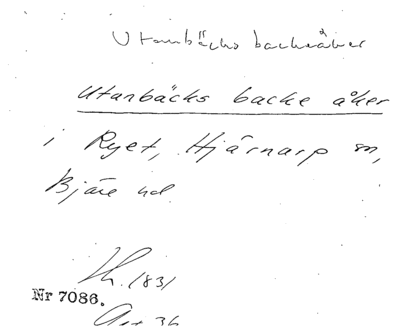 Utanbäcks backeåker
Utanbäcks backe åker
i Ryet, Hjärnarp sn,
Bjäre hd
1831
Nr 7086.
36